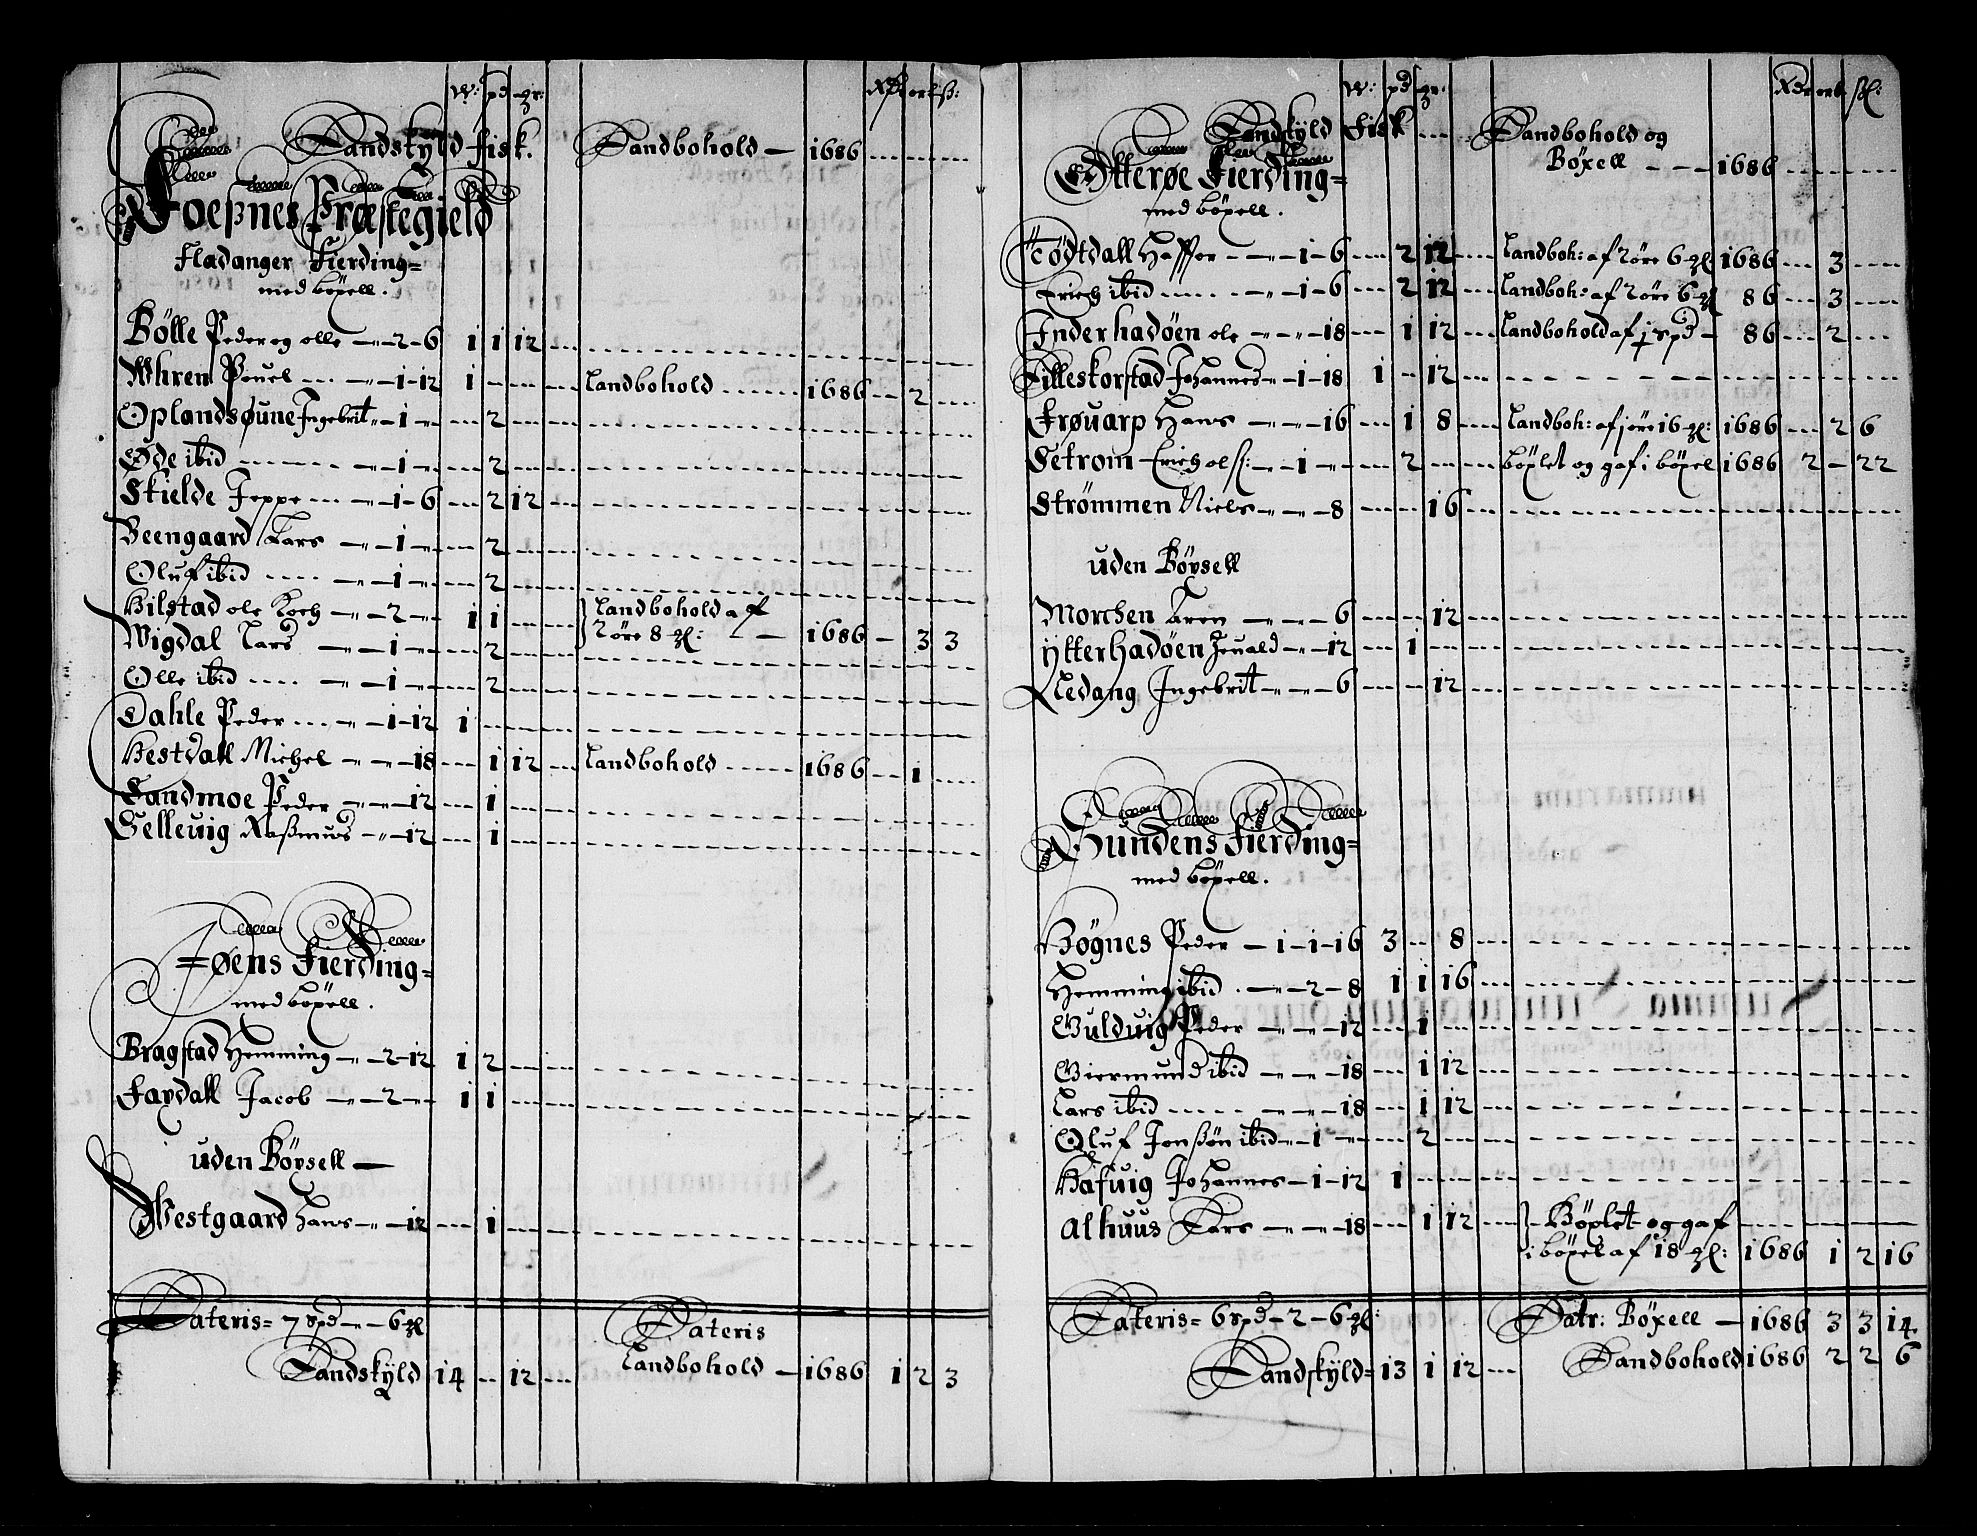 W: pd gr: Rdr ort ß:
Landskyld fisk. Landbohold — 1686
Foeßnes Præstegield
Fladanger Fierding=
med böxell.
Bölle Peder og olle — 2 - 6 1 1 12
Whren Pouel — 1 - 12 1 Landbohold 1686 2
Oplandsøune Ingebrit — 1 2
Øde ibid 1 2
Skielde Jeppe — 1 - 6 2 12
Beengaard Lars — 1 2
Oluf ibid 1 2
Hilstad ole Koch — 2 1 1 Landbohold af
Wigdal Lars — 1 2 2 öre 8 gl: — 1686 — 3 3
Olle ibid 1 2
Dahle Peder 1 - 12 1
Hestdall Michel — 18 1 12 Landbohold 1686 1
Sandmoe Peder — 12 1
Selleuig Raßmus — 12 1
øens Fierding=
med böxell.
Bragstad Hemming — 2 - 12 1 2
Fardall Jacob — 2 1 1
uden Böxsell —
Westgaard Hans — 12 1
Lateris= 7 spd — 6 gl Lateris
Landskyld 14 12 Landbohold — 1686 1 2 3
W: pd gr. Rdr ort ßl:
Landskyld Fisk Landbohold og
Böxell — 1686
Otterøe Fierding=
med böxell.
Tödtdall Haffor — 1 - 6 2 12 Landboh: af 2 öre 6 gl: 1686 3
Erich ibid 1 - 6 2 12 Landboh: af 2 öre 6 gl 86 3
Inderhadöen ole — 18 1 12 Landbohold af ½ spd — 86 2
Lilleskorstad Johannes — 1 - 18 1 12
Frøuarp Hans — 16 1 8 Landboh: af 1 öre 16 gl: 1686 2 6
Setrom Erich olß: — 1 2 böxlet og gaf i böxel 1686 2 — 22
Strömmen Niels — 8 16
uden Böxsell
Morchen Karen — 6 12
ytterhadöen Jeuald — 12 1
Ledang Ingebrit — 6 12
Hundens Fierding=
med böxell.
Högnes Peder — 1 - 1 - 16 3 8
Hemming ibid — 2 - 8 1 1 16
Guluuig Peder — 12 1
Giermund ibid — 18 1 12
Lars ibid 18 1 12
Oluf Jonßön ibid — 1 2
Hafuig Johannes — 1 - 12 1
alhuus Lars — 18 1 12 Böxlet og gaf
i böxel af 18 gl: 1686 1 2 16
Lateris= 6 spd - 2 - 6 gl: Latr: Böxell — 1686 3 3 14
Landskyld= 13 1 12 Landbohold 1686 2 2 6